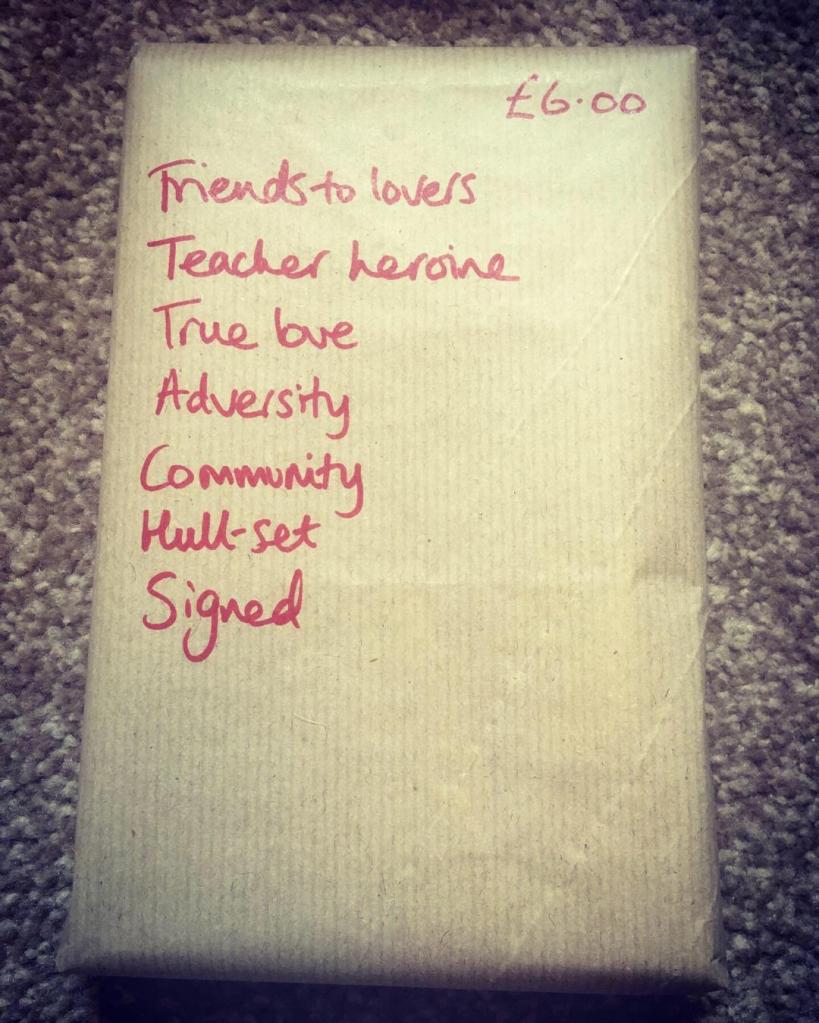 £6.00
Friends to lovers
Teacher heroine
True love
Adversity
Community
Hull-set
Signed